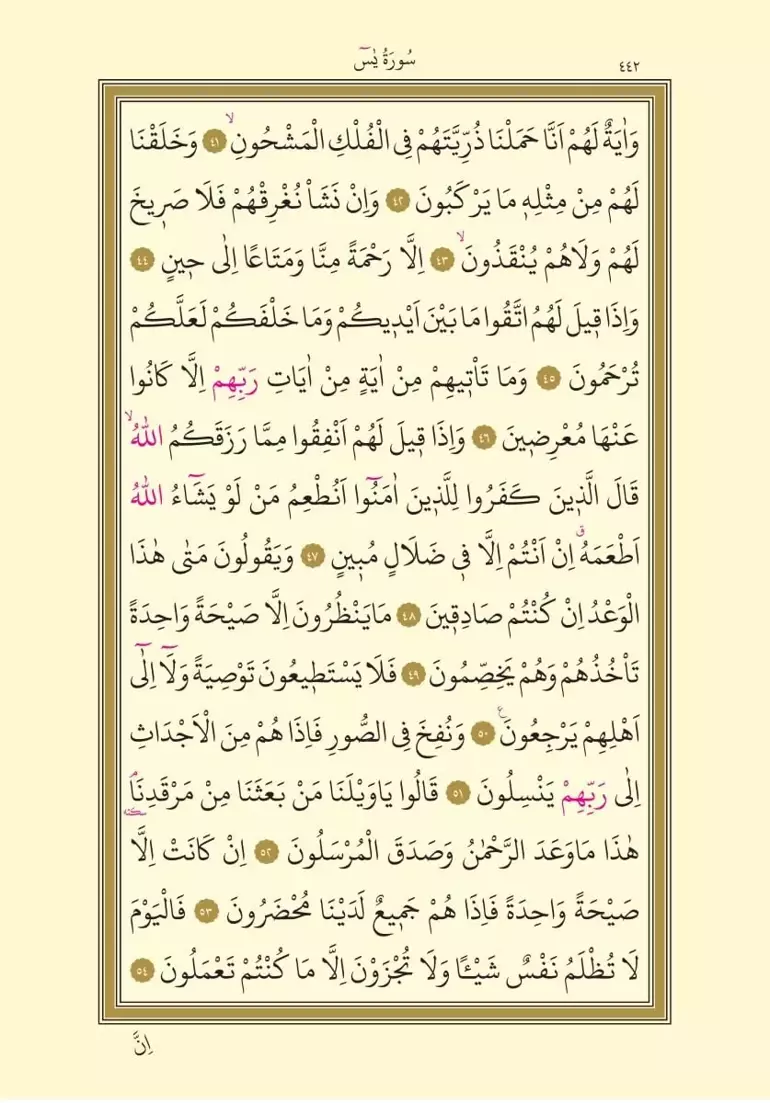 ٤٤٢
سُورَةُ يٰسٓ
وَاٰيَةٌ لَهُمْ اَنَّا حَمَلْنَا ذُرِّيَّتَهُمْ فِى الْفُلْكِ الْمَشْحُونِۙ ﴿٤١﴾ وَخَلَقْنَا
لَهُمْ مِنْ مِثْلِه۪ مَا يَرْكَبُونَ ﴿٤٢﴾ وَاِنْ نَشَأْ نُغْرِقْهُمْ فَلَا صَر۪يخَ
لَهُمْ وَلَاهُمْ يُنْقَذُونَۙ ﴿٤٣﴾ اِلَّا رَحْمَةً مِنَّا وَمَتَاعًا اِلٰى ح۪ينٍ ﴿٤٤﴾
وَاِذَا ق۪يلَ لَهُمُ اتَّقُوا مَا بَيْنَ اَيْد۪يكُمْ وَمَا خَلْفَكُمْ لَعَلَّكُمْ
تُرْحَمُونَ ﴿٤٥﴾ وَمَا تَأْت۪يهِمْ مِنْ اٰيَةٍ مِنْ اٰيَاتِ رَبِّهِمْ اِلَّا كَانُوا
عَنْهَا مُعْرِض۪ينَ ﴿٤٦﴾ وَاِذَا ق۪يلَ لَهُمْ اَنْفِقُوا مِمَّا رَزَقَكُمُ اللّٰهُۙ
قَالَ الَّذ۪ينَ كَفَرُوا لِلَّذ۪ينَ اٰمَنُٓوا اَنُطْعِمُ مَنْ لَوْ يَشَٓاءُ اللّٰهُ
اَطْعَمَهُۗ اِنْ اَنْتُمْ اِلَّا ف۪ى ضَلَالٍ مُب۪ينٍ ﴿٤٧﴾ وَيَقُولُونَ مَتٰى هٰذَا
الْوَعْدُ اِنْ كُنْتُمْ صَادِق۪ينَ ﴿٤٨﴾ مَايَنْظُرُونَ اِلَّا صَيْحَةً وَاحِدَةً
تَأْخُذُهُمْ وَهُمْ يَخِصِّمُونَ ﴿٤٩﴾ فَلَا يَسْتَط۪يعُونَ تَوْصِيَةً وَلَٓا اِلٰٓى
اَهْلِهِمْ يَرْجِعُونَ۟ ﴿٥٠﴾ وَنُفِخَ فِى الصُّورِ فَاِذَا هُمْ مِنَ الْاَجْدَاثِ
اِلٰى رَبِّهِمْ يَنْسِلُونَ ﴿٥١﴾ قَالُوا يَاوَيْلَنَا مَنْ بَعَثَنَا مِنْ مَرْقَدِنَاۢ
هٰذَا مَاوَعَدَ الرَّحْمٰنُ وَصَدَقَ الْمُرْسَلُونَ ﴿٥٢﴾ اِنْ كَانَتْ اِلَّا
صَيْحَةً وَاحِدَةً فَاِذَا هُمْ جَم۪يعٌ لَدَيْنَا مُحْضَرُونَ ﴿٥٣﴾ فَالْيَوْمَ
لَا تُظْلَمُ نَفْسٌ شَيْـًٔا وَلَا تُجْزَوْنَ اِلَّا مَا كُنْتُمْ تَعْمَلُونَ ﴿٥٤﴾
اِنَّ